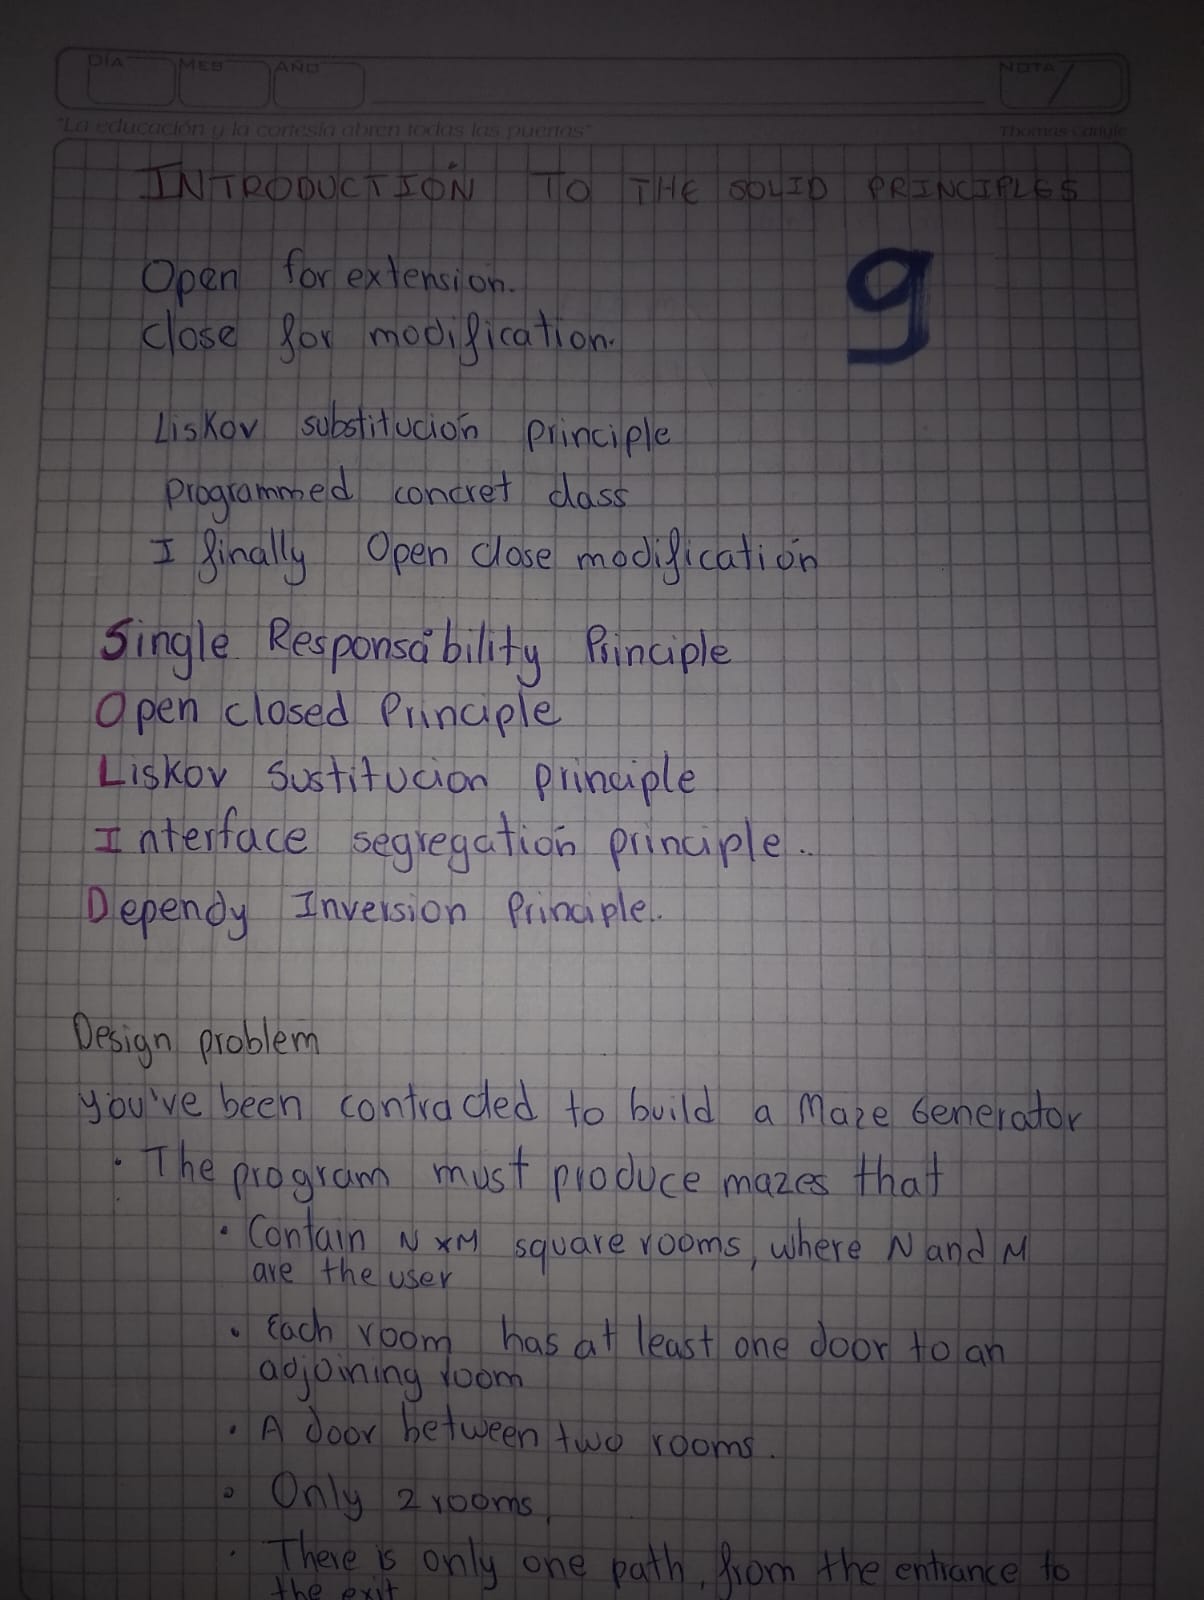 DÍA MES AÑO NOTA
"La educación y la cortesía abren todas las puertas" Thomas Carlyle
INTRODUCTIÓN TO THE SOLID PRINCIPLES
Open for extension.
close for modification.
9
Liskov substitución principle
Programmed concret class
I finally Open close modificatión
Single Responsability Principle
Open closed Principle
Liskov Sustitucion principle
Interface segregatión principle..
Dependy Inversion Principle.
Design problem
you've been contracted to build a Maze Generator
· The program must produce mazes that
· Contain N x M square rooms, where N and M
are the user
· Each room has at least one door to an
adjoining room
· A door between two rooms.
· Only 2 rooms,
· There is only one path, from the entrance to
the exit